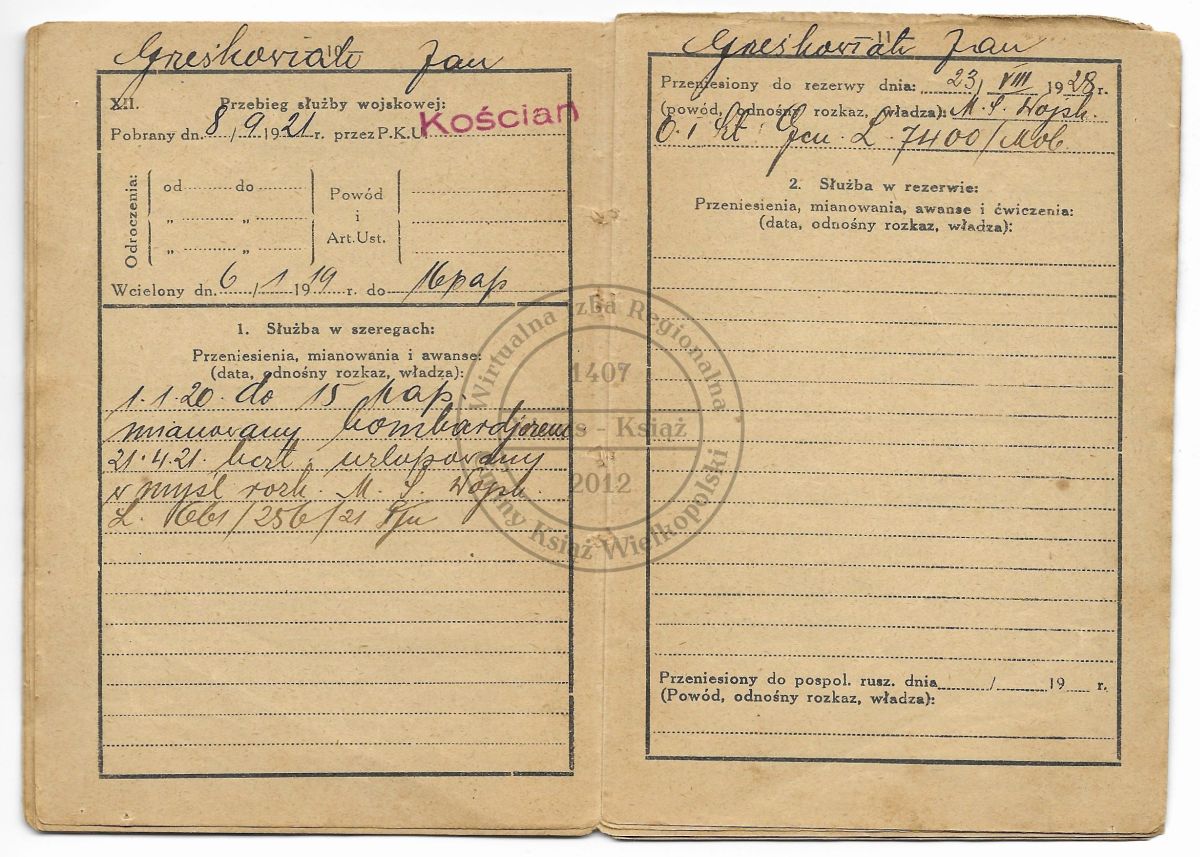 10
Grześkowiak Jan
XII. Przebieg służby wojskowej:
Pobrany dn. 8/9 1921 r. przez P.K.U. Kościan
Odroczenia:
od do
„ „
„ „
Powód
i
Art. Ust.
Wcielony dn. 6/1 1919 r. do 16 pap
1. Służba w szeregach:
Przeniesienia, mianowania i awanse:
(data, odnośny rozkaz, władza):
1.1.20. do 15 pap.
mianowany bombardjerem
21.4.21. bezt. urlopowany
w myśl rozk. M. S. Wojsk.
L. 256/21
11
Grześkowiak Jan
Przeniesiony do rezerwy dnia: 23/VIII 1928 r.
(powód, odnośny rozkaz, władza): M. S. Wojsk.
O. I Szt. Gen. L. 7400/Mob.
2. Służba w rezerwie:
Przeniesienia, mianowania, awanse i ćwiczenia:
(data, odnośny rozkaz, władza):
Przeniesiony do pospol. rusz. dnia / 19 r.
(Powód, odnośny rozkaz, władza):
Wirtualna Izba Regionalna
1407
Książ
2012
Gminy Książ Wielkopolski